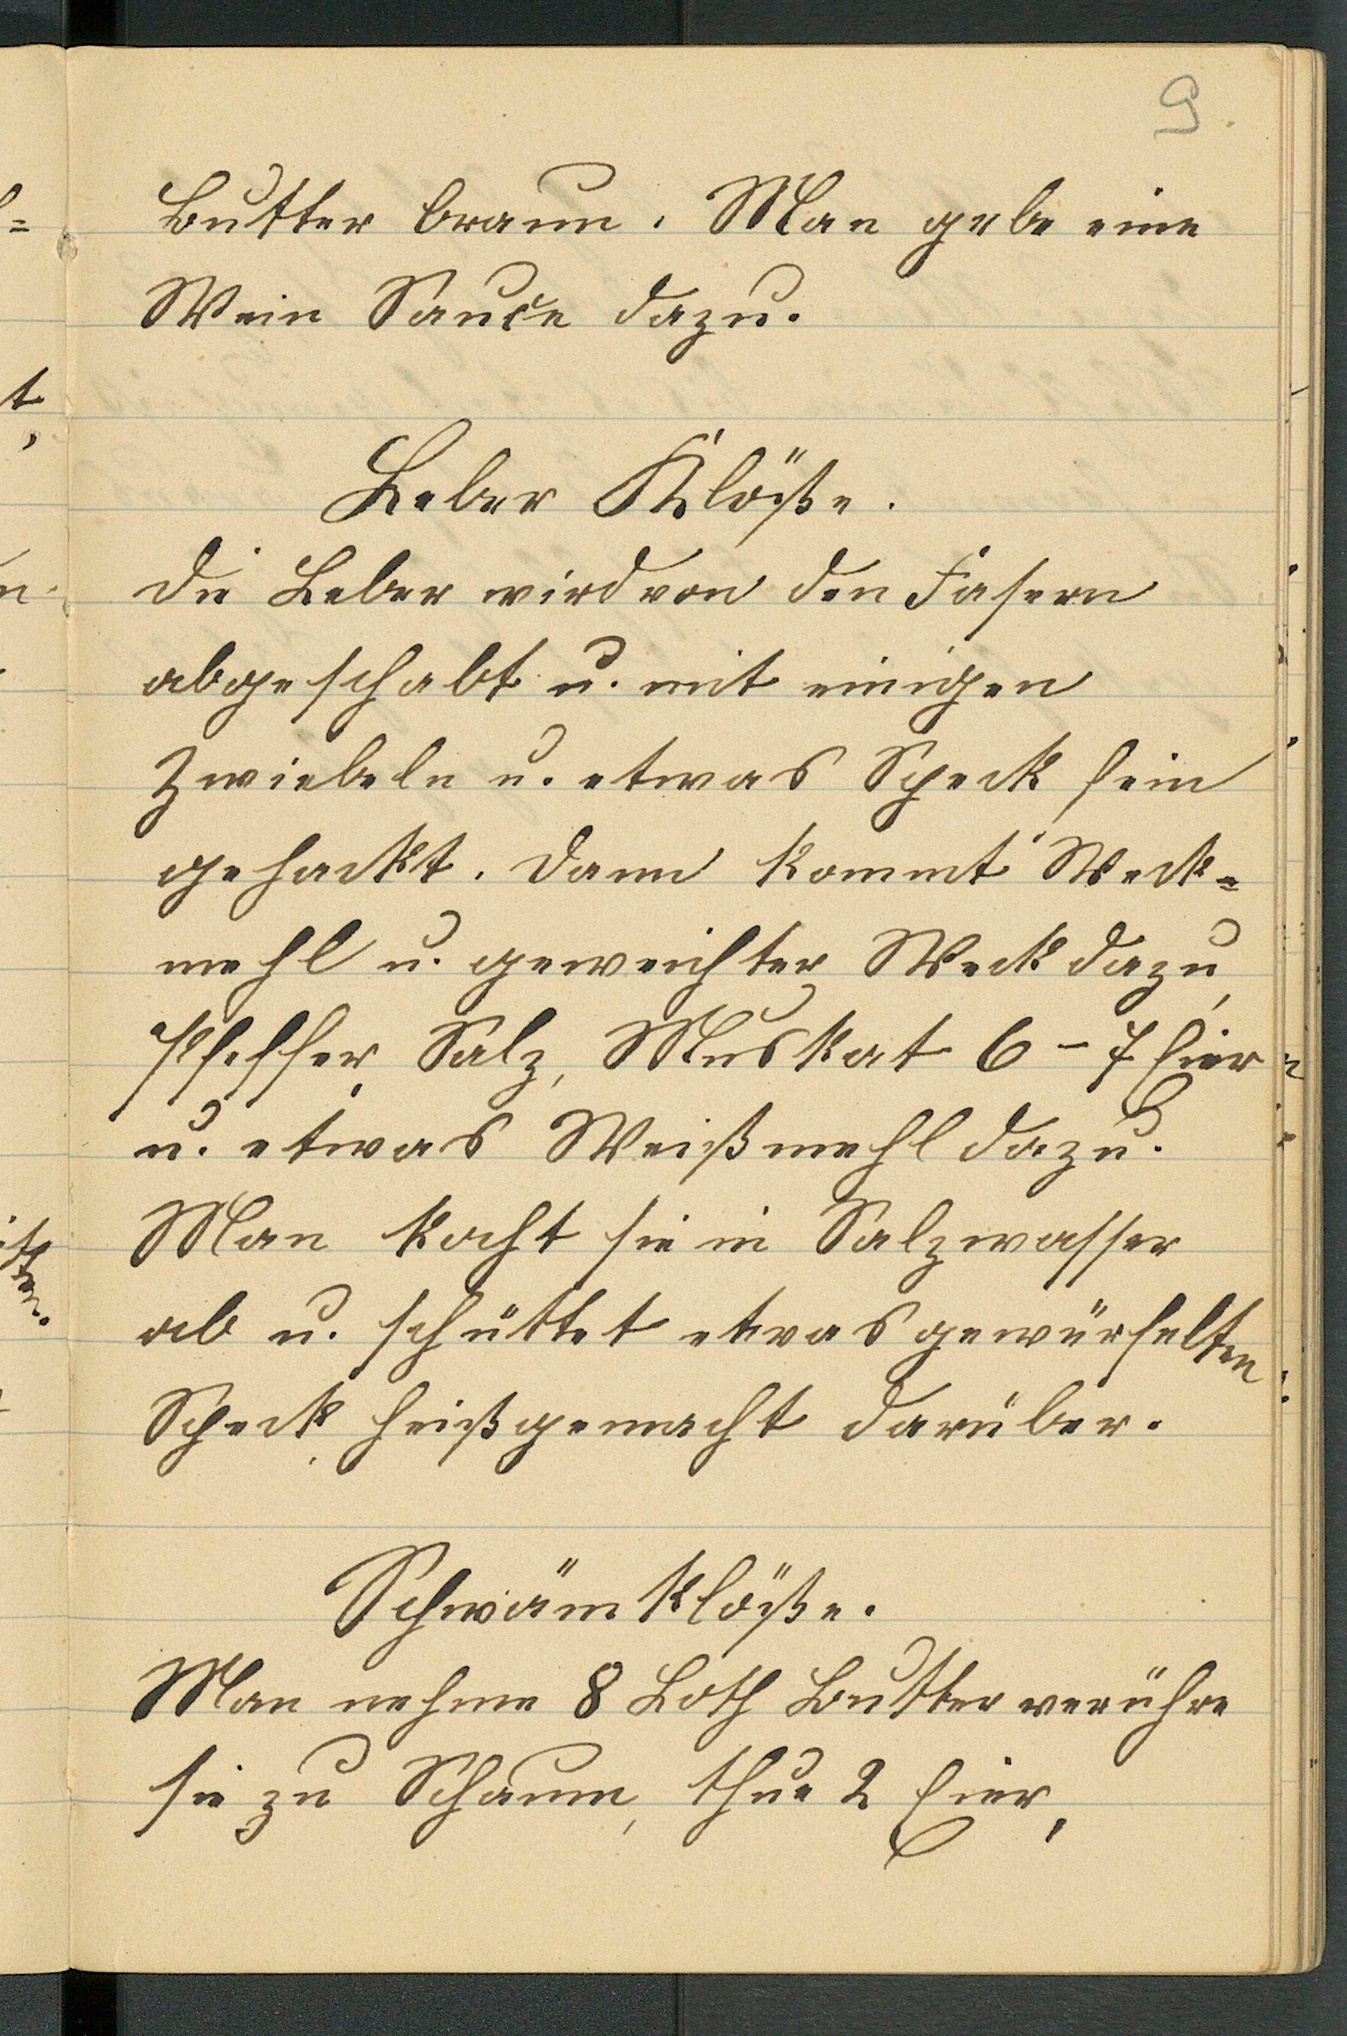 9.
Butter braun. Man gebe eine
Wein Sauce dazu.
Leber Klöße.
Die Leber wird von den Fasern
abgeschabt u. mit einigen
Zwiebeln u. etwas Speck fein
gehackt. Dann kommt Weck=
mehl u. geweichter Weck dazu,
Pfeffer, Salz, Muskat 6 – 7 Eier
u. etwas Weißmehl dazu.
Man kocht sie in Salzwasser
ab u. schüttet etwas gewürfelten
Speck heißgemacht darüber.
Schwämklöße.
Man nehme 8 Loth Butter verrühre
sie zu Schaum, thue 2 Eier,